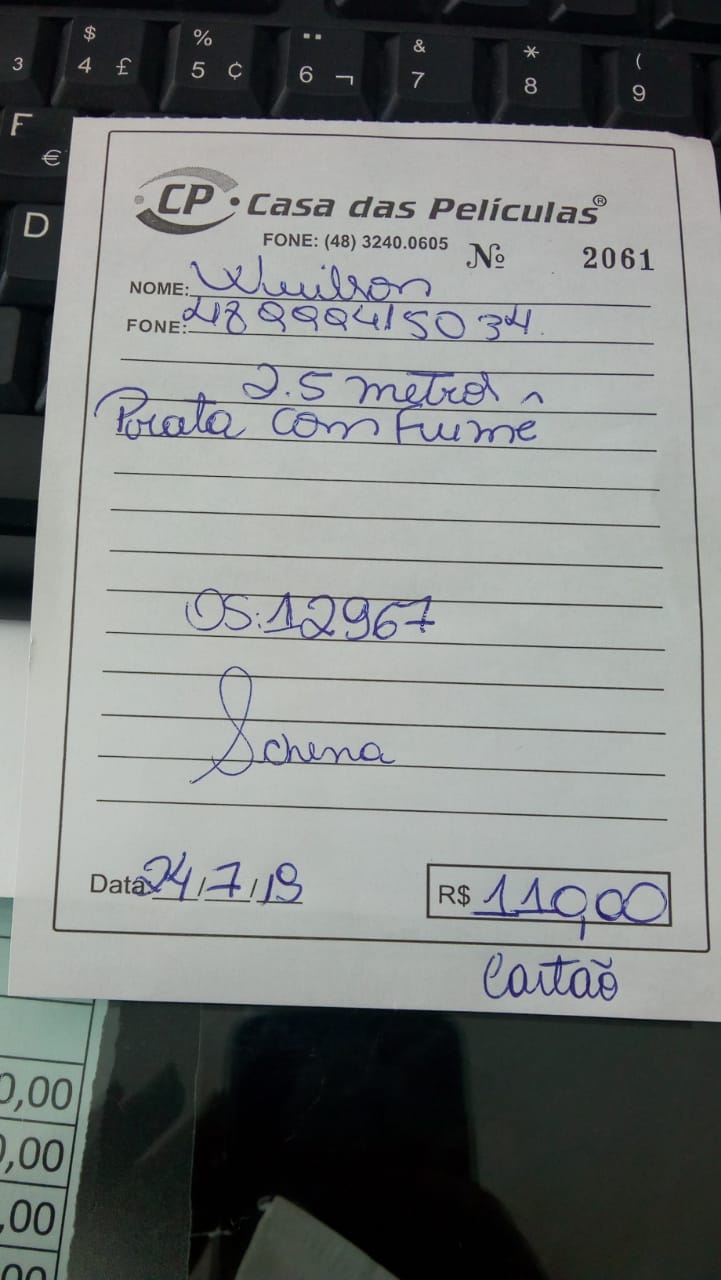 $ % ¨ & * (
3 4 £ 5 ¢ 6 ¬ 7 8 9
F
€
D
CP Casa das Películas®
FONE: (48) 3240.0605 Nº 2061
NOME:
FONE: 48999415034
2.5 metros
Prata com Fume
OS:12967
Schena
Data 24/7/19 R$ 110,00
Cartão
0,00
0,00
,00
00